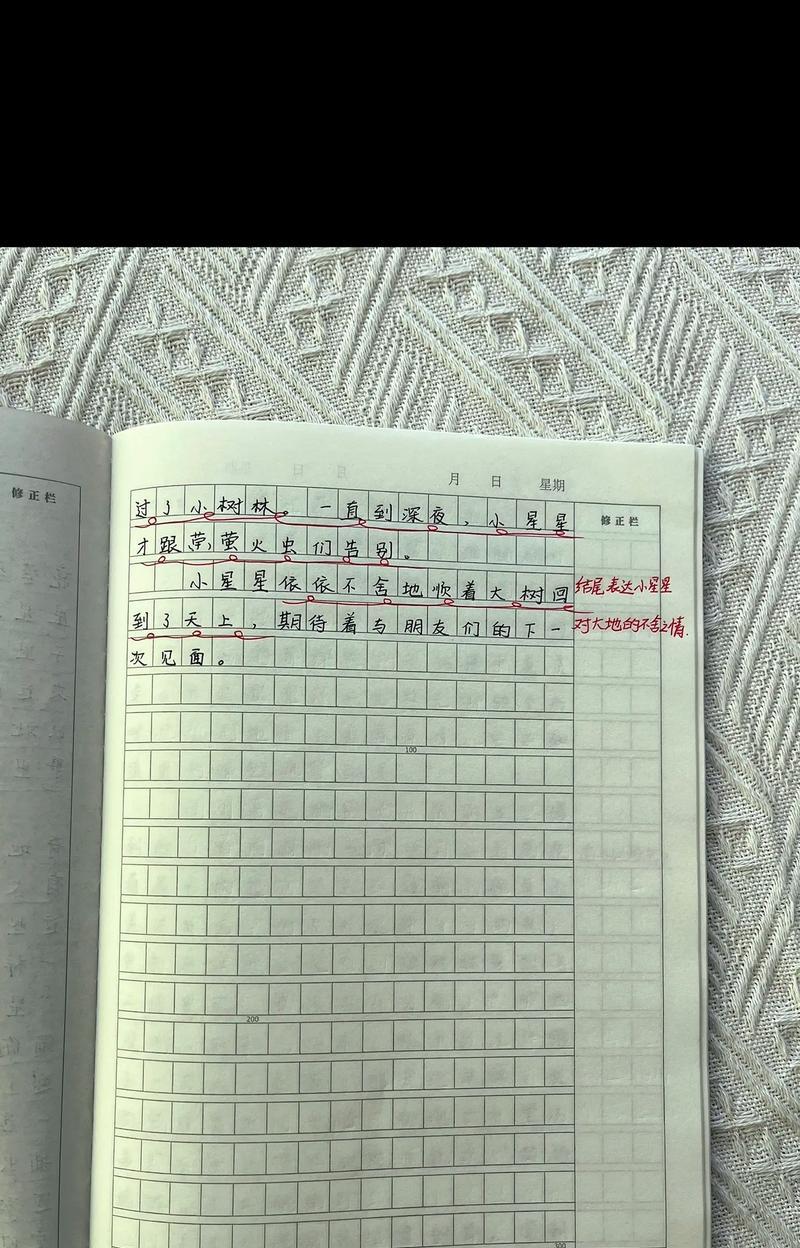 修正栏
月 日 星期
修正栏
过了小树林。一直到深夜，小星星
才跟萤萤火虫们告别。
小星星依依不舍地顺着大树回
到了天上，期待着与朋友们的下一
次见面。
结尾表达小星星
对大地的不舍之情.
100
200
300